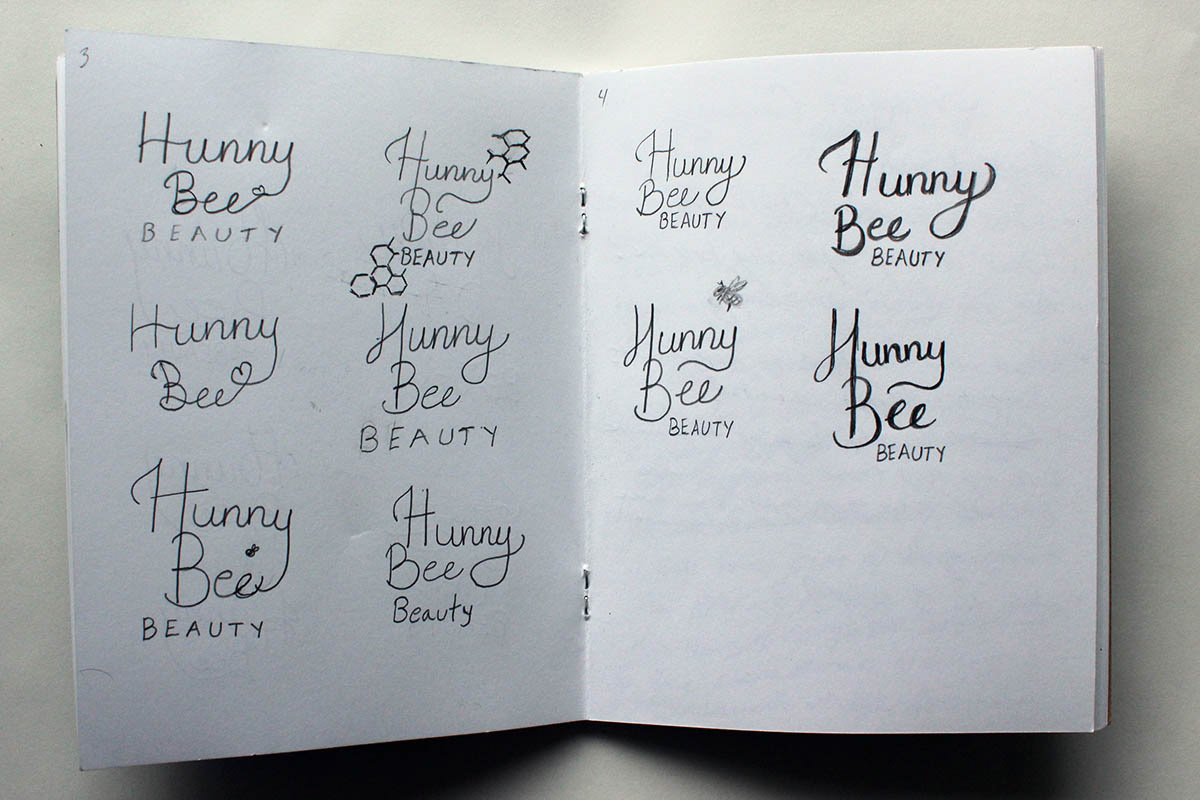 3
Hunny
Bee
BEAUTY
Hunny
Bee
BEAUTY
Hunny
Bee
Hunny
Bee
BEAUTY
Hunny
Bee
BEAUTY
Hunny
Bee
Beauty
4
Hunny
Bee
BEAUTY
Hunny
Bee
BEAUTY
Hunny
Bee
BEAUTY
Hunny
Bee
BEAUTY